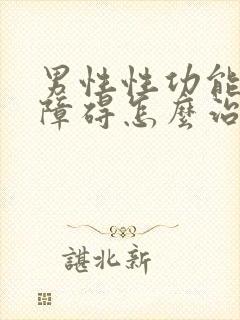 男性性功能
障碍怎麽治
諶北新